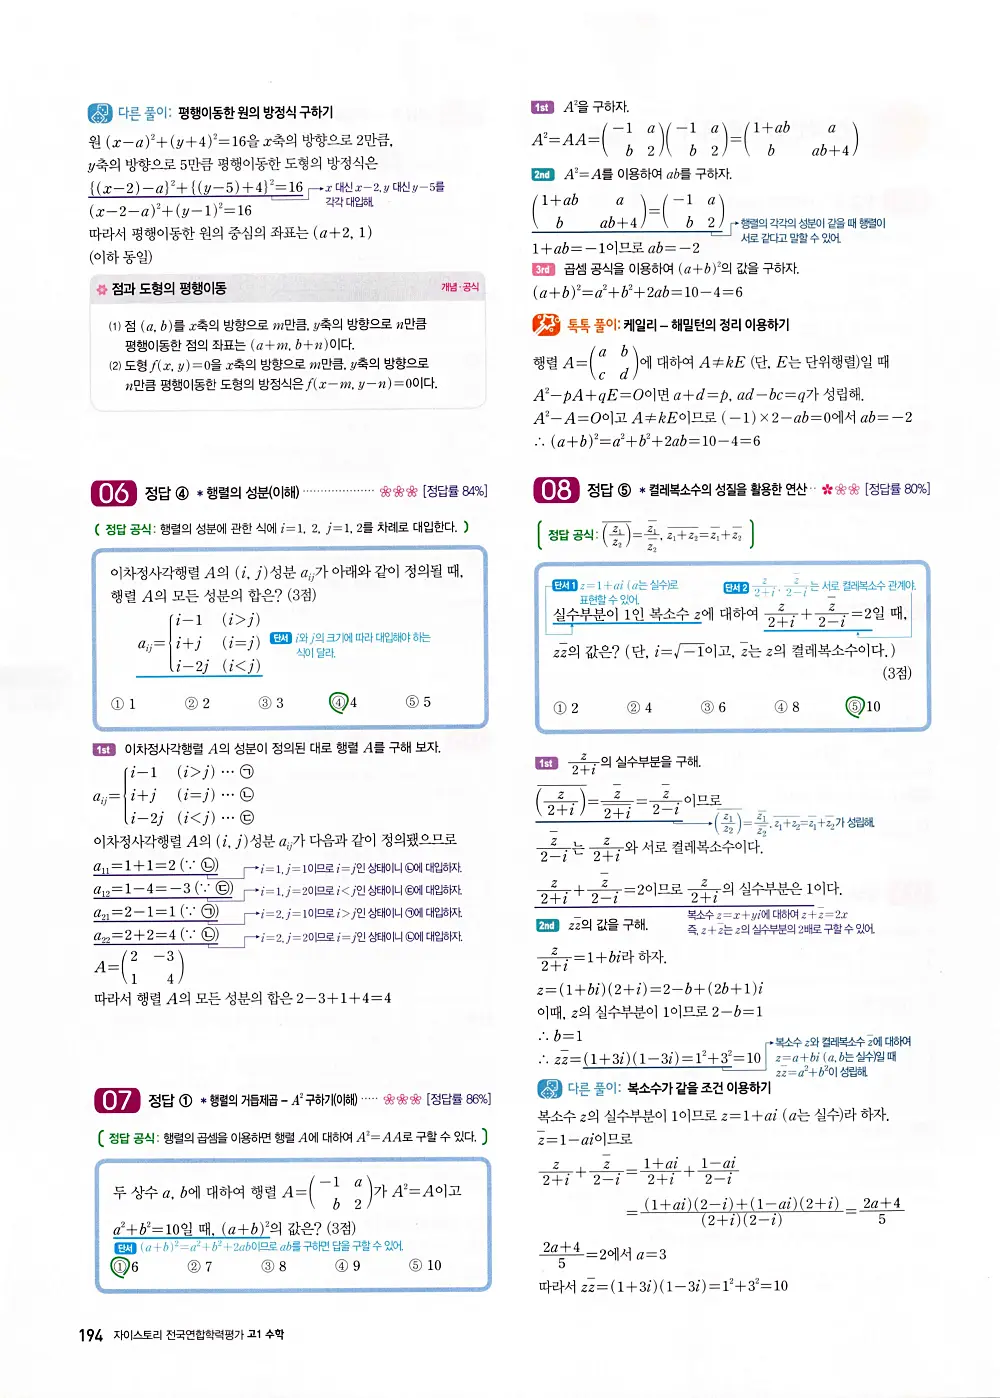 다른 풀이: 평행이동한 원의 방정식 구하기
원 (x-a)²+(y+4)²=16을 x축의 방향으로 2만큼,
y축의 방향으로 5만큼 평행이동한 도형의 방정식은
{(x-2)-a}²+{(y-5)+4}²=16
x 대신 x-2, y 대신 y-5를
각각 대입해.
(x-2-a)²+(y-1)²=16
따라서 평행이동한 원의 중심의 좌표는 (a+2, 1)
(이하 동일)
점과 도형의 평행이동 개념·공식
(1) 점 (a, b)를 x축의 방향으로 m만큼, y축의 방향으로 n만큼
평행이동한 점의 좌표는 (a+m, b+n)이다.
(2) 도형 f(x, y)=0을 x축의 방향으로 m만큼, y축의 방향으로
n만큼 평행이동한 도형의 방정식은 f(x-m, y-n)=0이다.
06 정답 ④ *행렬의 성분(이해) [정답률 84%]
( 정답 공식: 행렬의 성분에 관한 식에 i=1, 2, j=1, 2를 차례로 대입한다. )
이차정사각행렬 A의 (i, j)성분 aᵢⱼ가 아래와 같이 정의될 때,
행렬 A의 모든 성분의 합은? (3점)
i-1 (i>j)
aᵢⱼ={ i+j (i=j)
i-2j (i<j)
단서 i와 j의 크기에 따라 대입해야 하는
식이 달라.
① 1 ② 2 ③ 3 ④ 4 ⑤ 5
1st 이차정사각행렬 A의 성분이 정의된 대로 행렬 A를 구해 보자.
i-1 (i>j) … ㉠
aᵢⱼ={ i+j (i=j) … ㉡
i-2j (i<j) … ㉢
이차정사각행렬 A의 (i, j)성분 aᵢⱼ가 다음과 같이 정의됐으므로
a₁₁=1+1=2 (∵ ㉡) i=1, j=1이므로 i=j인 상태이니 ㉡에 대입하자.
a₁₂=1-4=-3 (∵ ㉢) i=1, j=2이므로 i<j인 상태이니 ㉢에 대입하자.
a₂₁=2-1=1 (∵ ㉠) i=2, j=1이므로 i>j인 상태이니 ㉠에 대입하자.
a₂₂=2+2=4 (∵ ㉡) i=2, j=2이므로 i=j인 상태이니 ㉡에 대입하자.
A=(2 -3
1 4)
따라서 행렬 A의 모든 성분의 합은 2-3+1+4=4
07 정답 ① *행렬의 거듭제곱 – A² 구하기(이해) [정답률 86%]
( 정답 공식: 행렬의 곱셈을 이용하면 행렬 A에 대하여 A²=AA로 구할 수 있다. )
두 상수 a, b에 대하여 행렬 A=(-1 a
b 2)가 A²=A이고
a²+b²=10일 때, (a+b)²의 값은? (3점)
단서 (a+b)²=a²+b²+2ab이므로 ab를 구하면 답을 구할 수 있어.
① 6 ② 7 ③ 8 ④ 9 ⑤ 10
194 자이스토리 전국연합학력평가 고1 수학
1st A²을 구하자.
A²=AA=(-1 a)(-1 a)=(1+ab a)
(b 2)(b 2) (b ab+4)
2nd A²=A를 이용하여 ab를 구하자.
(1+ab a)=(-1 a)
(b ab+4) (b 2)
행렬의 각각의 성분이 같을 때 행렬이
서로 같다고 말할 수 있어.
1+ab=-1이므로 ab=-2
3rd 곱셈 공식을 이용하여 (a+b)²의 값을 구하자.
(a+b)²=a²+b²+2ab=10-4=6
톡톡 풀이: 케일리 – 해밀턴의 정리 이용하기
행렬 A=(a b
c d)에 대하여 A≠kE (단, E는 단위행렬)일 때
A²-pA+qE=O이면 a+d=p, ad-bc=q가 성립해.
A²-A=O이고 A≠kE이므로 (-1)×2-ab=0에서 ab=-2
∴ (a+b)²=a²+b²+2ab=10-4=6
08 정답 ⑤ *켤레복소수의 성질을 활용한 연산 [정답률 80%]
( 정답 공식: \overline{(z₁/z₂)}=z̄₁/z̄₂, \overline{z₁+z₂}=z̄₁+z̄₂ )
단서1 z=1+ai (a는 실수)로
표현할 수 있어.
단서2 z/(2+i), z̄/(2-i)는 서로 켤레복소수 관계야.
실수부분이 1인 복소수 z에 대하여 z/(2+i)+z̄/(2-i)=2일 때,
zz̄의 값은? (단, i=√-1이고, z̄는 z의 켤레복소수이다.)
(3점)
① 2 ② 4 ③ 6 ④ 8 ⑤ 10
1st z/(2+i)의 실수부분을 구해.
\overline{(z/(2+i))}=z̄/\overline{2+i}=z̄/(2-i)이므로
\overline{(z₁/z₂)}=z̄₁/z̄₂, \overline{z₁+z₂}=z̄₁+z̄₂가 성립해.
z̄/(2-i)는 z/(2+i)와 서로 켤레복소수이다.
z/(2+i)+z̄/(2-i)=2이므로 z/(2+i)의 실수부분은 1이다.
복소수 z=x+yi에 대하여 z+z̄=2x
즉, z+z̄는 z의 실수부분의 2배로 구할 수 있어.
2nd zz̄의 값을 구해.
z/(2+i)=1+bi라 하자.
z=(1+bi)(2+i)=2-b+(2b+1)i
이때, z의 실수부분이 1이므로 2-b=1
∴ b=1
∴ zz̄=(1+3i)(1-3i)=1²+3²=10
복소수 z와 켤레복소수 z̄에 대하여
z=a+bi (a, b는 실수)일 때
zz̄=a²+b²이 성립해.
다른 풀이: 복소수가 같을 조건 이용하기
복소수 z의 실수부분이 1이므로 z=1+ai (a는 실수)라 하자.
z̄=1-ai이므로
z/(2+i)+z̄/(2-i)=(1+ai)/(2+i)+(1-ai)/(2-i)
=((1+ai)(2-i)+(1-ai)(2+i))/((2+i)(2-i))=(2a+4)/5
(2a+4)/5=2에서 a=3
따라서 zz̄=(1+3i)(1-3i)=1²+3²=10